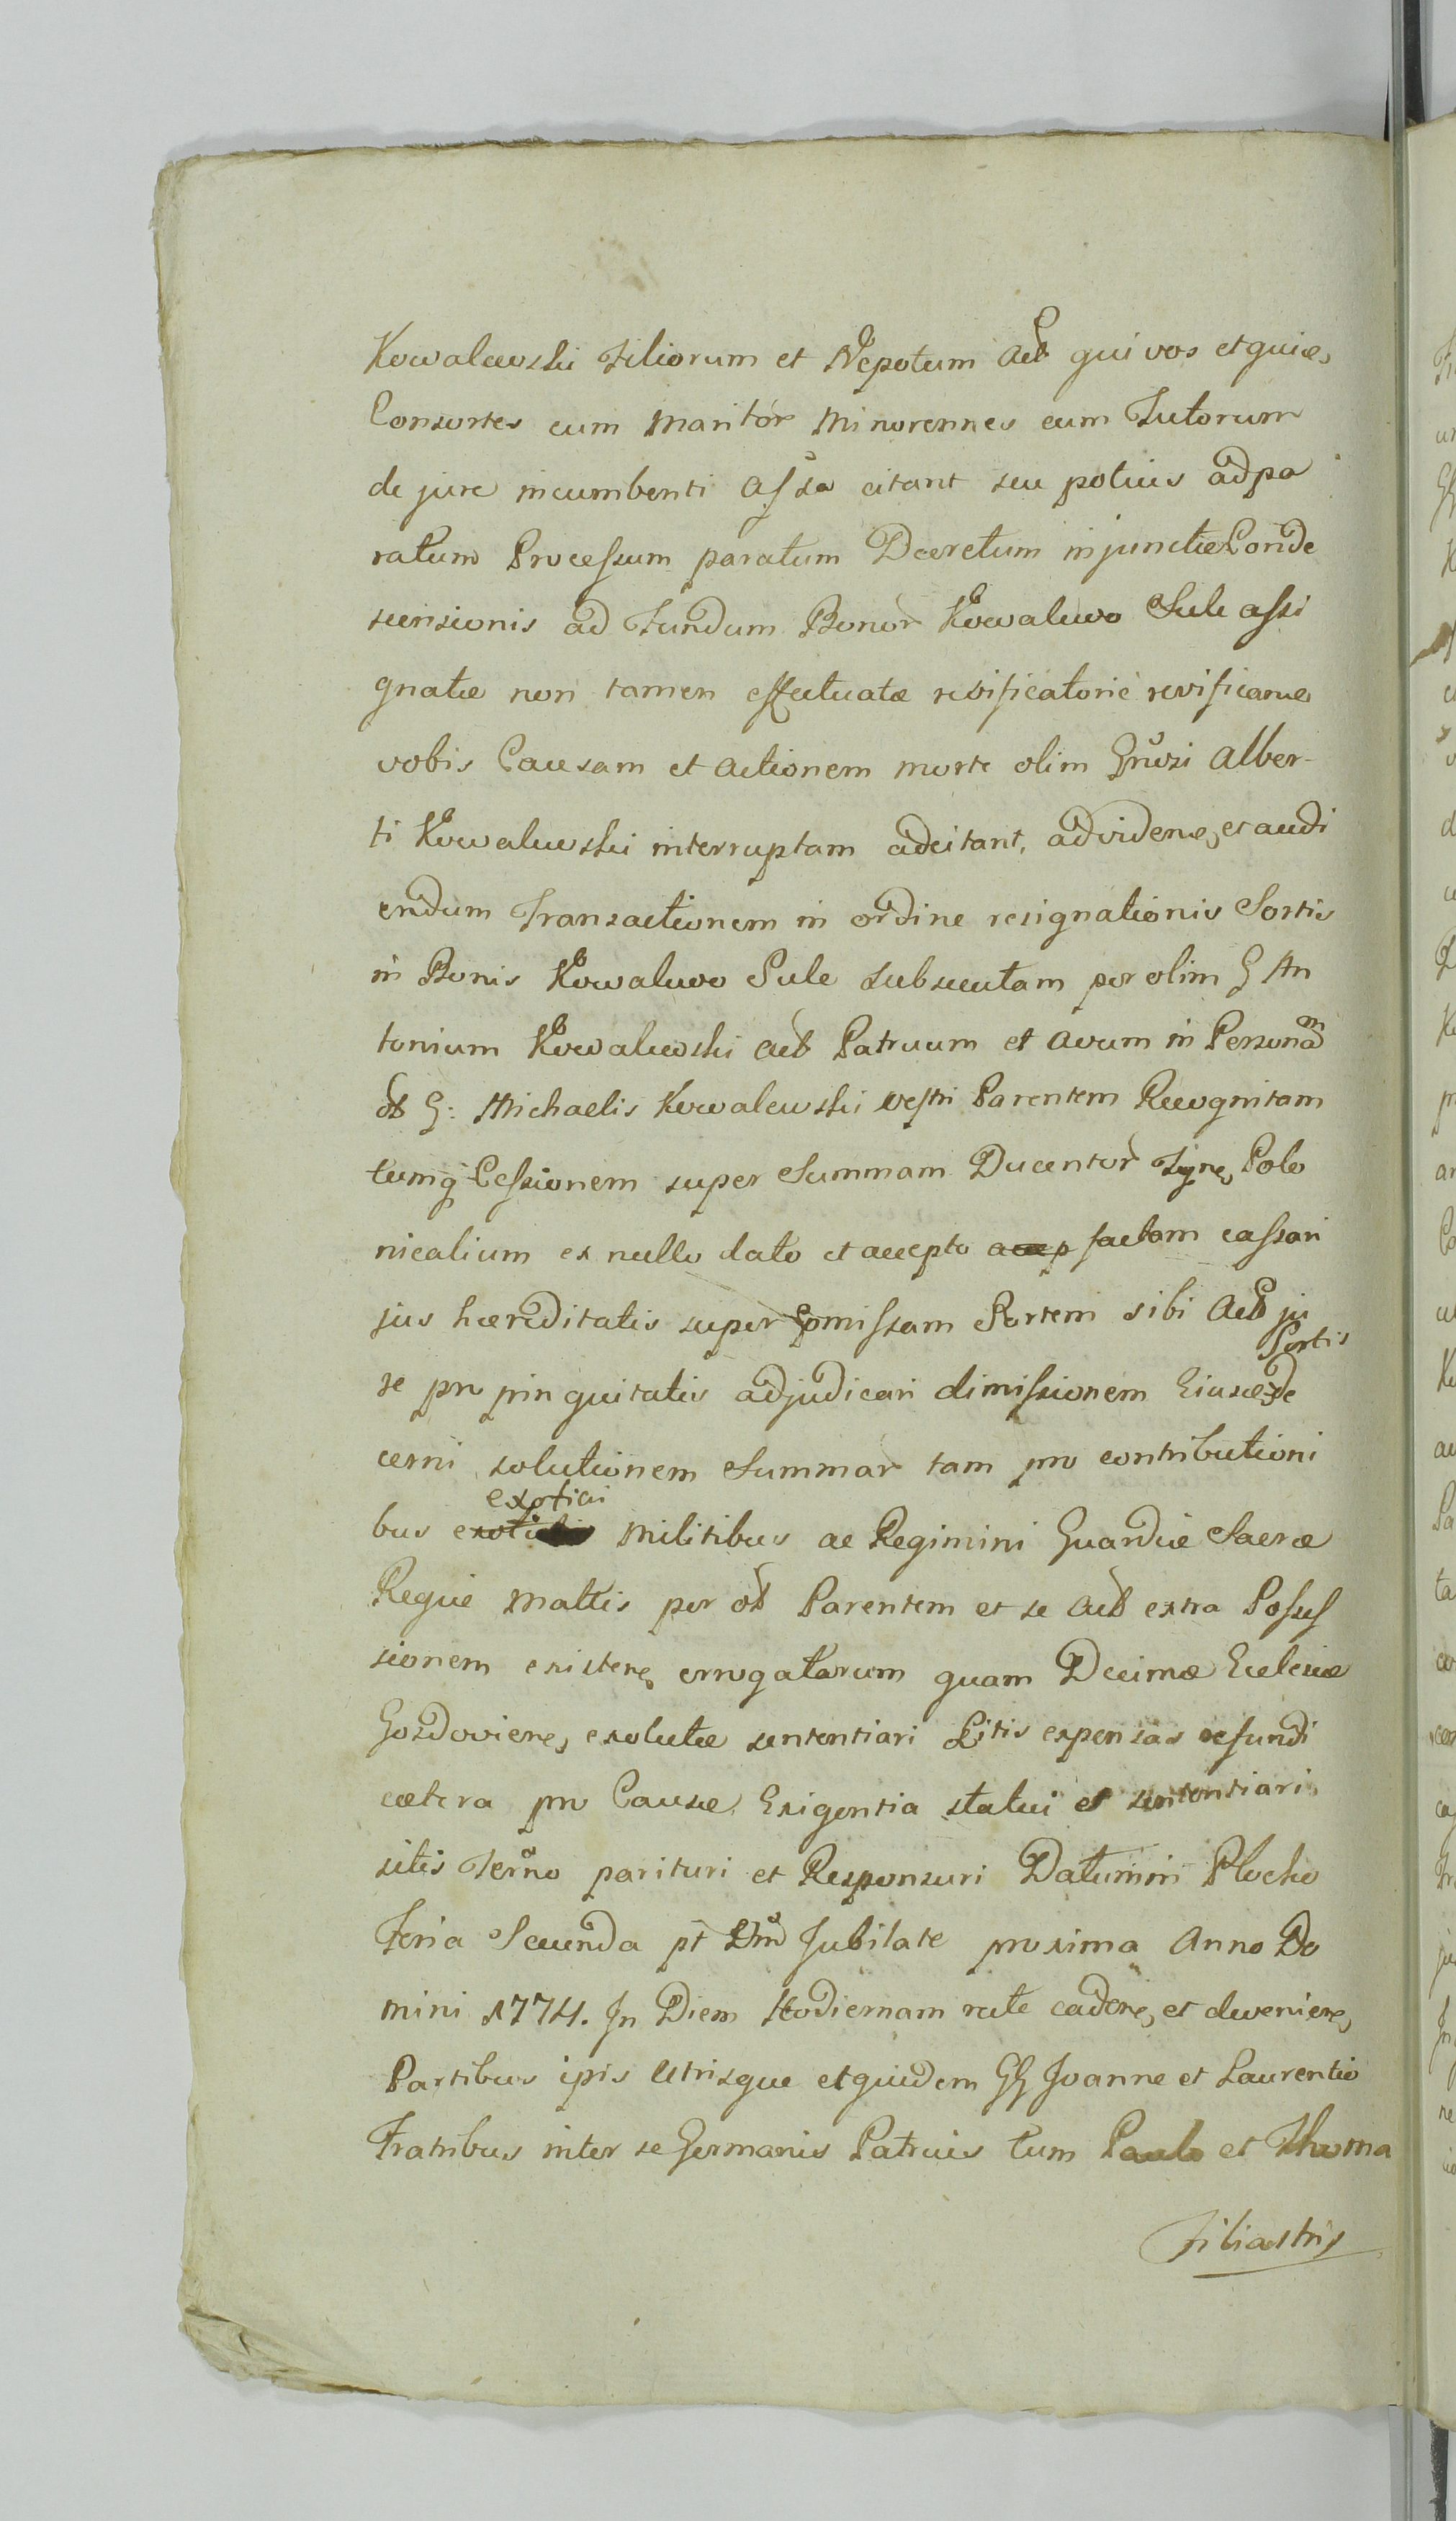 Kowalewski Filiorum et Nepotum Act qui vos et quiæ,
Consortes cum Maritor Minorennes cum Tutorum
de jure incumbenti Assa citant seu potius ad pa
ratum Processum paratum Decretum injunctæ Conde
scensionis ad Fundum Bonor Kowalewo Sule assi
gnatæ non tamen effectuatæ revificatorie revificare
vobis Causam et Actionem morte olim Grosi Alber-
ti Kowalewski interruptam adcitant, ad videne, et audi
endum Transactionem in ordine resignationis Sortis
in Bonis Kowalewo Sule subsecutam per olim G An
tonium Kowalewski Act Patruum et Avum in Personam
ol G: Michaelis Kowalewski vestri Parentem Recognitam
tumq Cessionem super Summam Ducentor Fyne, Polo
nicalium ex nullo dato et accepto factam cassari
jus hæreditatis super pmissam Sortem sibi Act ju
re pro pinquitatis adjudicari dimissionem Ejusce de
Sortis
cerni solutionem Summar tam pro contributioni
exotici
bus Militibus ac Regimini Guardiæ Sacræ
Regiæ Mattis per ol Parentem et se Act extra Posses
sionem existere, errogatarum quam Decimæ Ecclesiæ
Gozdoviens, exolutæ sententiari Litis expensas refundi
cætera pro Causæ Exigentia statui et sententiari
sitis Terno parituri et Responsuri Datumin Plocko
Feria Secunda pt Dm Jubilate proxima Anno Do
mini 1774. In Diem Hodiernam rite cadere, et devenire,
Partibus ipis Utrisque et quidem GG Joanne et Laurentio
Fratribus inter se Germanis Patruis tum Paulo et Thoma
Filiastris